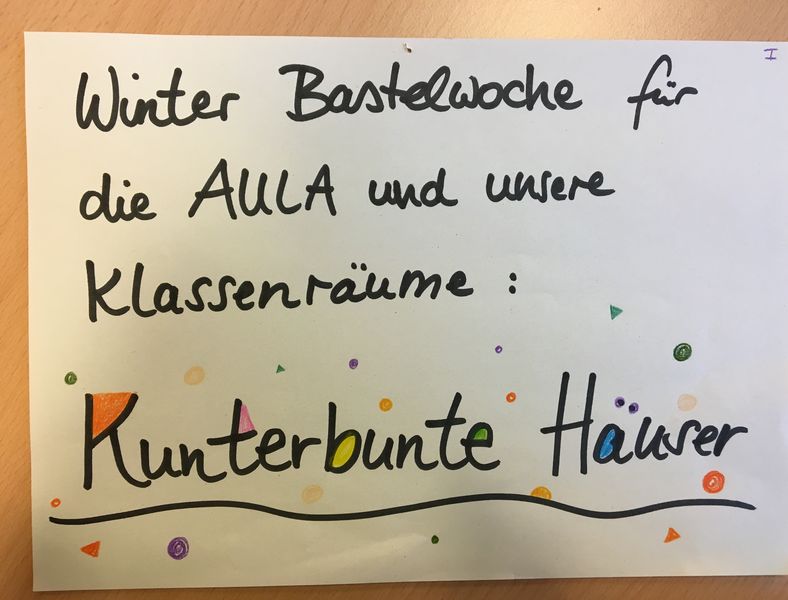 I
Winter Bastelwoche für
die AULA und unsere
Klassenräume :
Kunterbunte Häuser